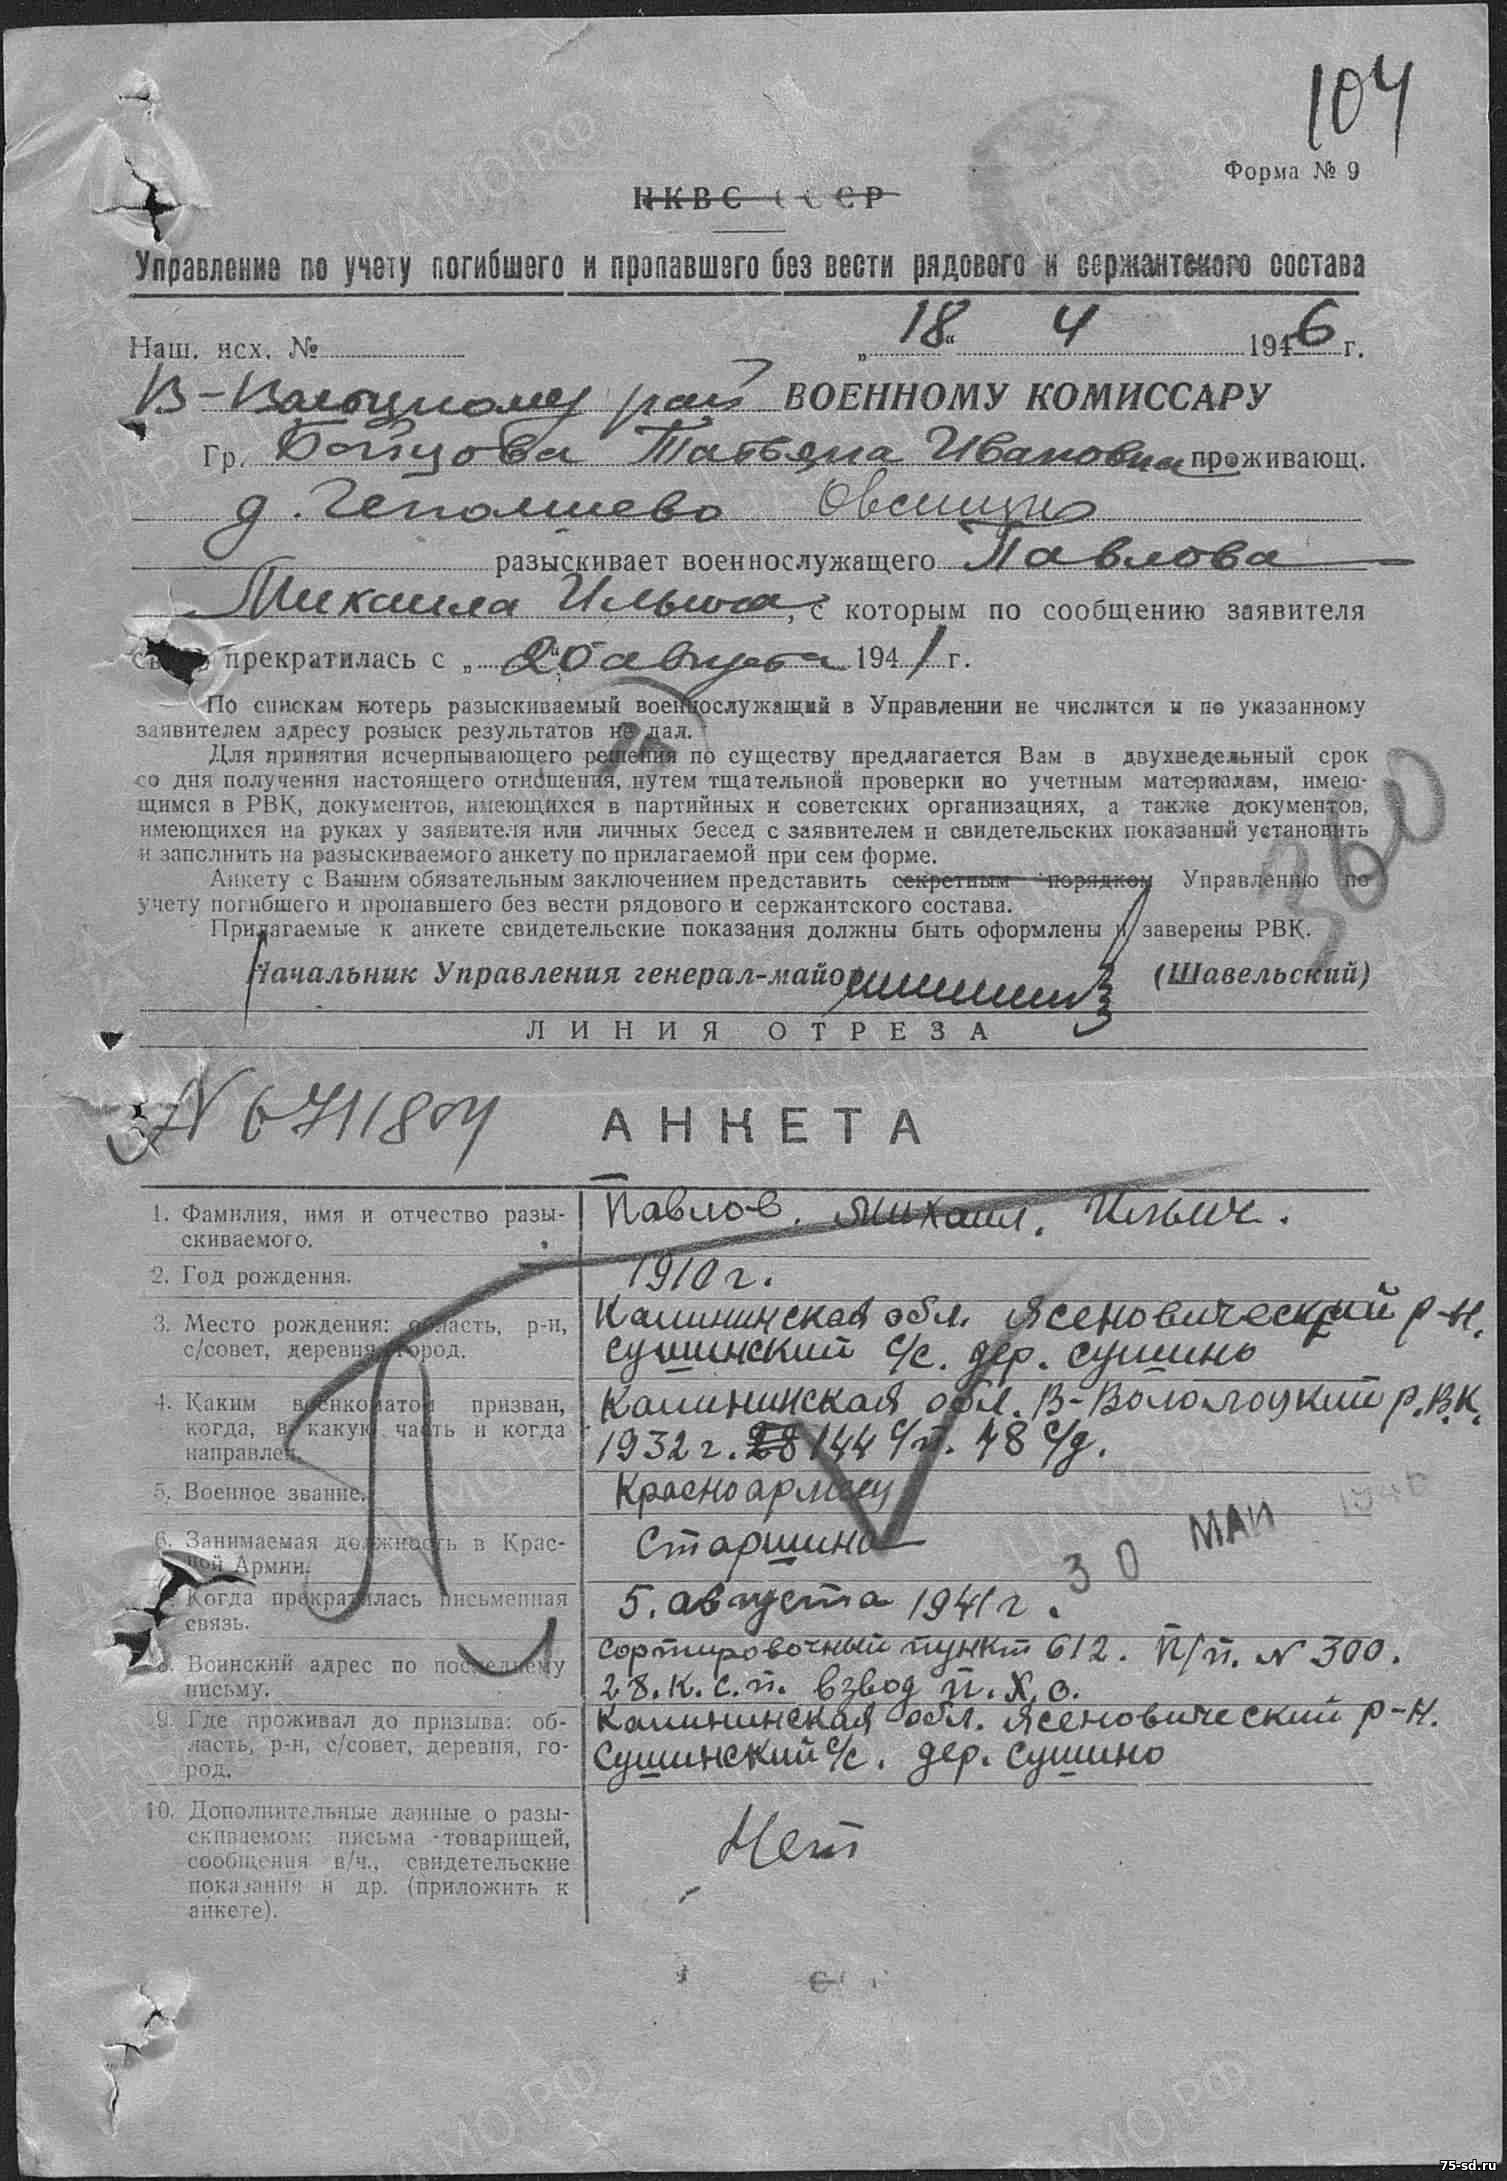 104
Форма № 9
НКВС СССР
Управление по учету погибшего и пропавшего без вести рядового и сержантского состава
Наш. исх. № „ 18 “ 4 1946 г.
рай ВОЕННОМУ КОМИССАРУ
Гр. Бойцова Татьяна Ивановна проживающ.
д.
разыскивает военнослужащего Павлова
Михаила Ильича, с которым по сообщению заявителя
связь прекратилась с „ августа 1941 г.
По спискам потерь разыскиваемый военнослужащий в Управлении не числится и по указанному
заявителем адресу розыск результатов не дал.
Для принятия исчерпывающего решения по существу предлагается Вам в двухнедельный срок
со дня получения настоящего отношения, путем тщательной проверки по учетным материалам, имею-
щимся в РВК, документов, имеющихся в партийных и советских организациях, а также документов,
имеющихся на руках у заявителя или личных бесед с заявителем и свидетельских показаний установить
и заполнить на разыскиваемого анкету по прилагаемой при сем форме.
Анкету с Вашим обязательным заключением представить секретным порядком Управлению по
учету погибшего и пропавшего без вести рядового и сержантского состава.
Прилагаемые к анкете свидетельские показания должны быть оформлены и заверены РВК.
360
Начальник Управления генерал-майор (Шавельский)
ЛИНИЯ ОТРЕЗА
N 6711804
АНКЕТА
1. Фамилия, имя и отчество разы-
скиваемого.
Павлов. Михаил. Ильич.
2. Год рождения.
1910 г.
3. Место рождения: область, р-н,
с/совет, деревня, город.
Калининская обл. Ясеновический р-н.
Сушинский с/с. дер. Сушино
4. Каким военкоматом призван,
когда, в какую часть и когда
направлен.
Калининская обл. В-Воломоцкий р.в.к.
1932 г. 28 144 с/п. 48 с/д.
5. Военное звание.
Красноармеец
6. Занимаемая должность в Крас-
ной Армии.
Старшина
30 МАЙ 1946
Когда прекратилась письменная
связь.
5. августа 1941 г.
8. Воинский адрес по последнему
письму.
Сортировочный пункт 612. П/п. N 300.
28. к. с. п. взвод п. х. о.
9. Где проживал до призыва: об-
ласть, р-н, с/совет, деревня, го-
род.
Калининская обл. Ясеновический р-н.
Сушинский с/с. дер. Сушино
10. Дополнительные данные о разы-
скиваемом: письма товарищей,
сообщения в/ч., свидетельские
показания и др. (приложить к
анкете).
Нет
75-sd.ru